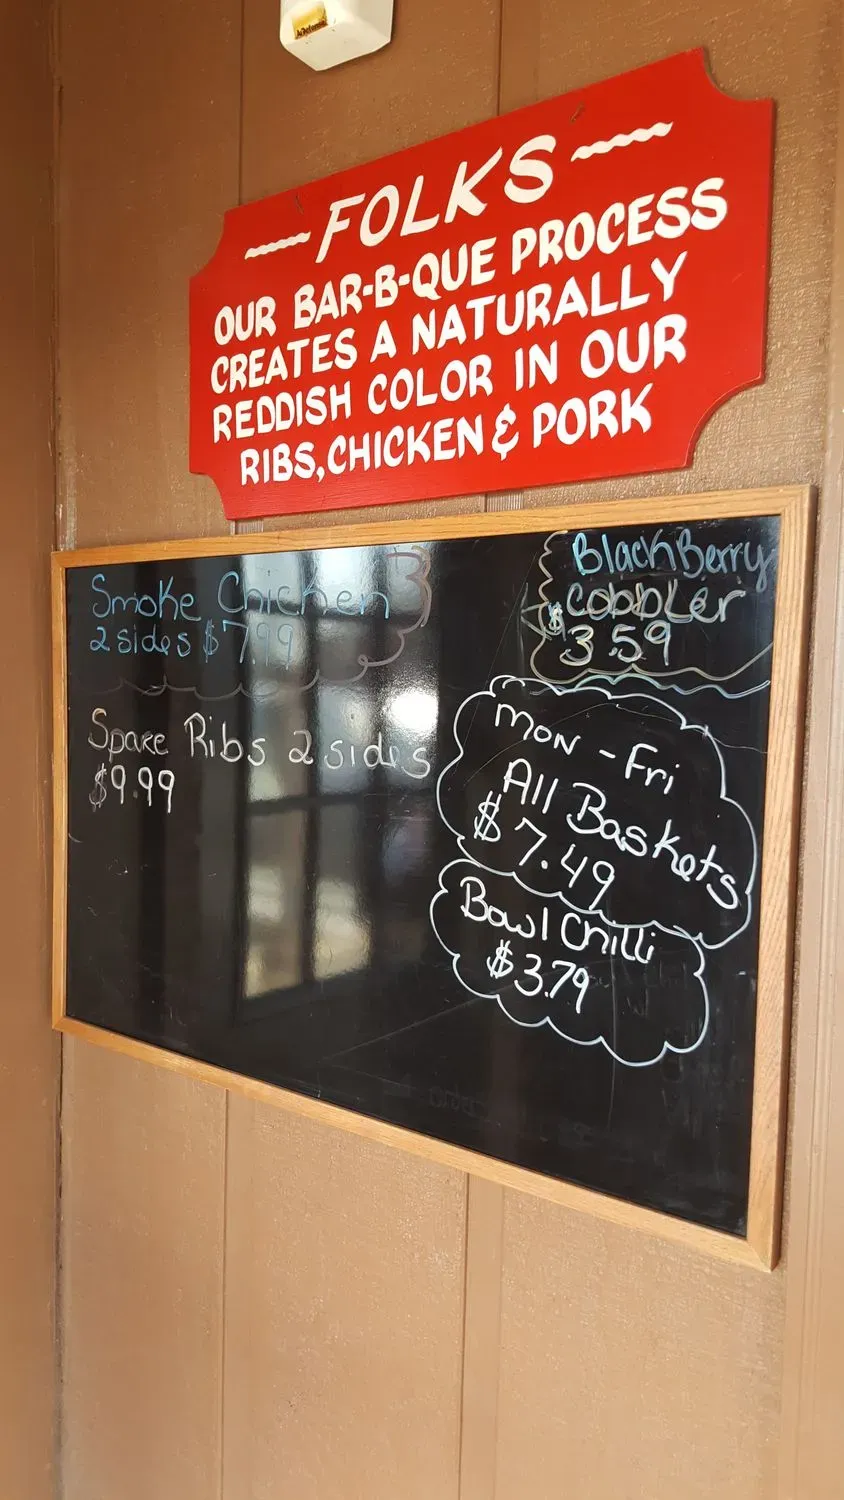 FOLKS
OUR BAR-B-QUE PROCESS
CREATES A NATURALLY
REDDISH COLOR IN OUR
RIBS, CHICKEN & PORK
Smoke Chicken
2 sides $7.99
Spare Ribs 2 sides
$9.99
BlackBerry
cobbLer
$3.59
Mon - Fri
All Baskets
$7.49
Bowl Chilli
$3.79